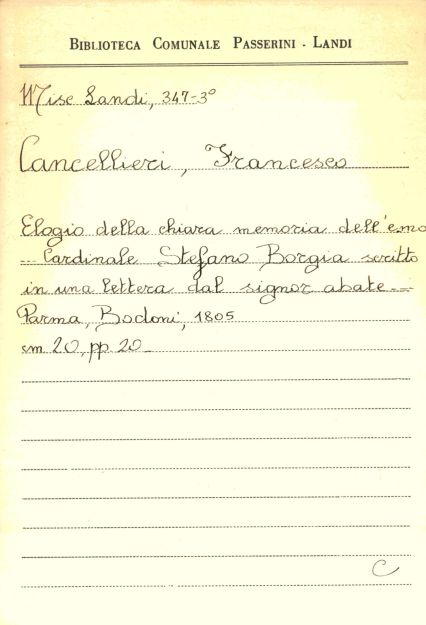 BIBLIOTECA COMUNALE PASSERINI - LANDI
Misc Landi, 347-3°
Cancellieri, Francesco
Elogio della chiara memoria dell'emo
... Cardinale Stefano Borgia scritto
in una lettera dal signor abate ...
Parma, Bodoni, 1805
cm 20, pp 20
C